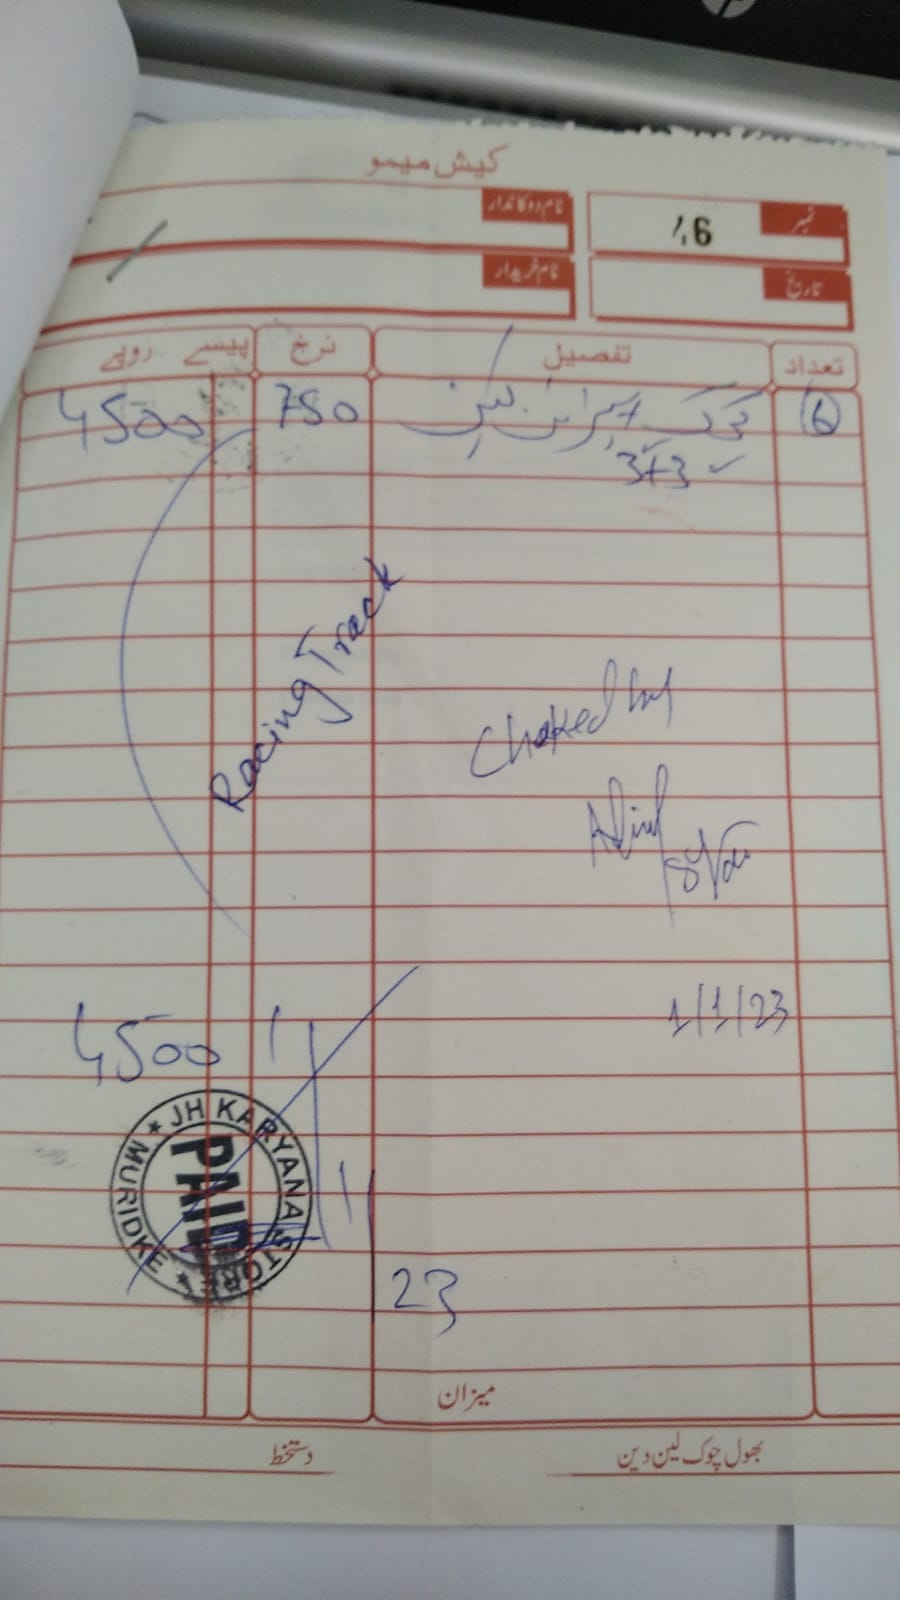 کیش میمو
نمبر
نام دوکاندار
تاریخ
نام خریدار
تعداد تفصیل نرخ پیسے روپے
6 750 4500
3+3
Racing Track
Chaked by
1/1/23
4500
JH KARYANA STORE
PAID
MURIDKE
1/1/23
میزان
بھول چوک لین دین
دستخط